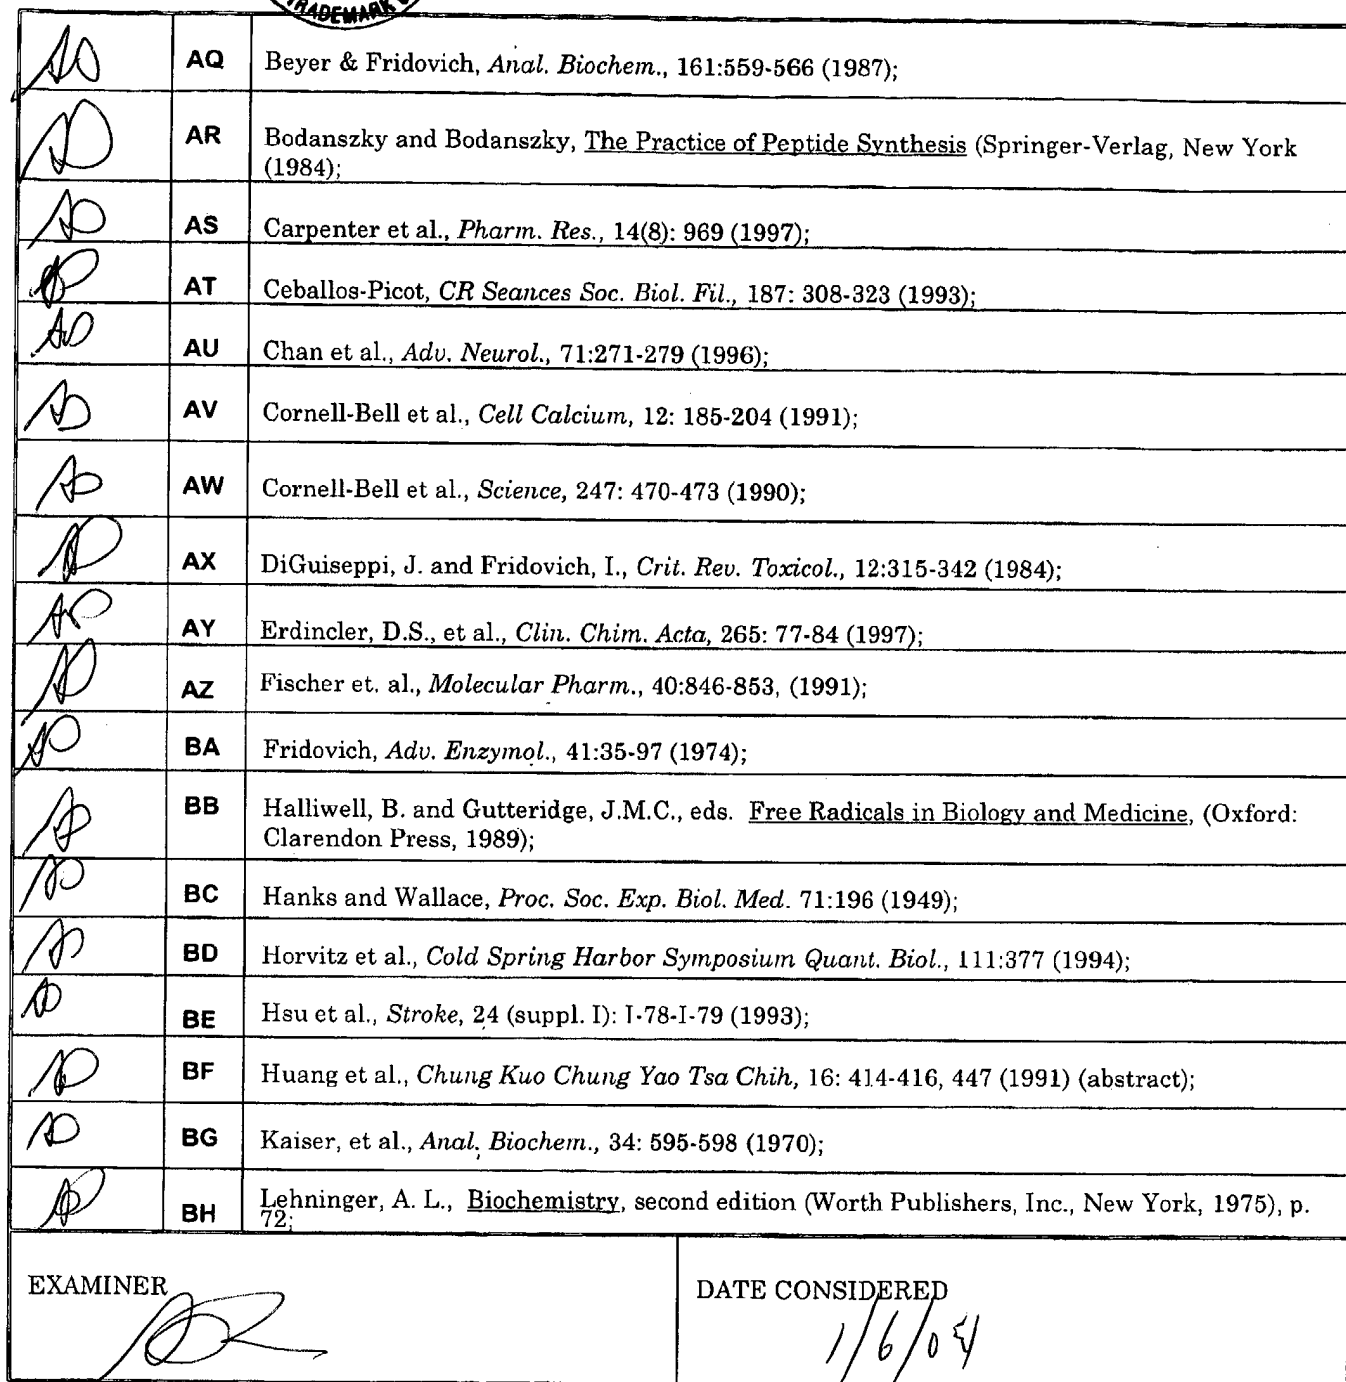 TRADEMARK
AQ Beyer & Fridovich, Anal. Biochem., 161:559-566 (1987);
AR Bodanszky and Bodanszky, The Practice of Peptide Synthesis (Springer-Verlag, New York
(1984);
AS Carpenter et al., Pharm. Res., 14(8): 969 (1997);
AT Ceballos-Picot, CR Seances Soc. Biol. Fil., 187: 308-323 (1993);
AU Chan et al., Adv. Neurol., 71:271-279 (1996);
AV Cornell-Bell et al., Cell Calcium, 12: 185-204 (1991);
AW Cornell-Bell et al., Science, 247: 470-473 (1990);
AX DiGuiseppi, J. and Fridovich, I., Crit. Rev. Toxicol., 12:315-342 (1984);
AY Erdincler, D.S., et al., Clin. Chim. Acta, 265: 77-84 (1997);
AZ Fischer et. al., Molecular Pharm., 40:846-853, (1991);
BA Fridovich, Adv. Enzymol., 41:35-97 (1974);
BB Halliwell, B. and Gutteridge, J.M.C., eds. Free Radicals in Biology and Medicine, (Oxford:
Clarendon Press, 1989);
BC Hanks and Wallace, Proc. Soc. Exp. Biol. Med. 71:196 (1949);
BD Horvitz et al., Cold Spring Harbor Symposium Quant. Biol., 111:377 (1994);
BE Hsu et al., Stroke, 24 (suppl. I): I-78-I-79 (1993);
BF Huang et al., Chung Kuo Chung Yao Tsa Chih, 16: 414-416, 447 (1991) (abstract);
BG Kaiser, et al., Anal. Biochem., 34: 595-598 (1970);
BH Lehninger, A. L., Biochemistry, second edition (Worth Publishers, Inc., New York, 1975), p.
72;
EXAMINER
DATE CONSIDERED
1/6/04